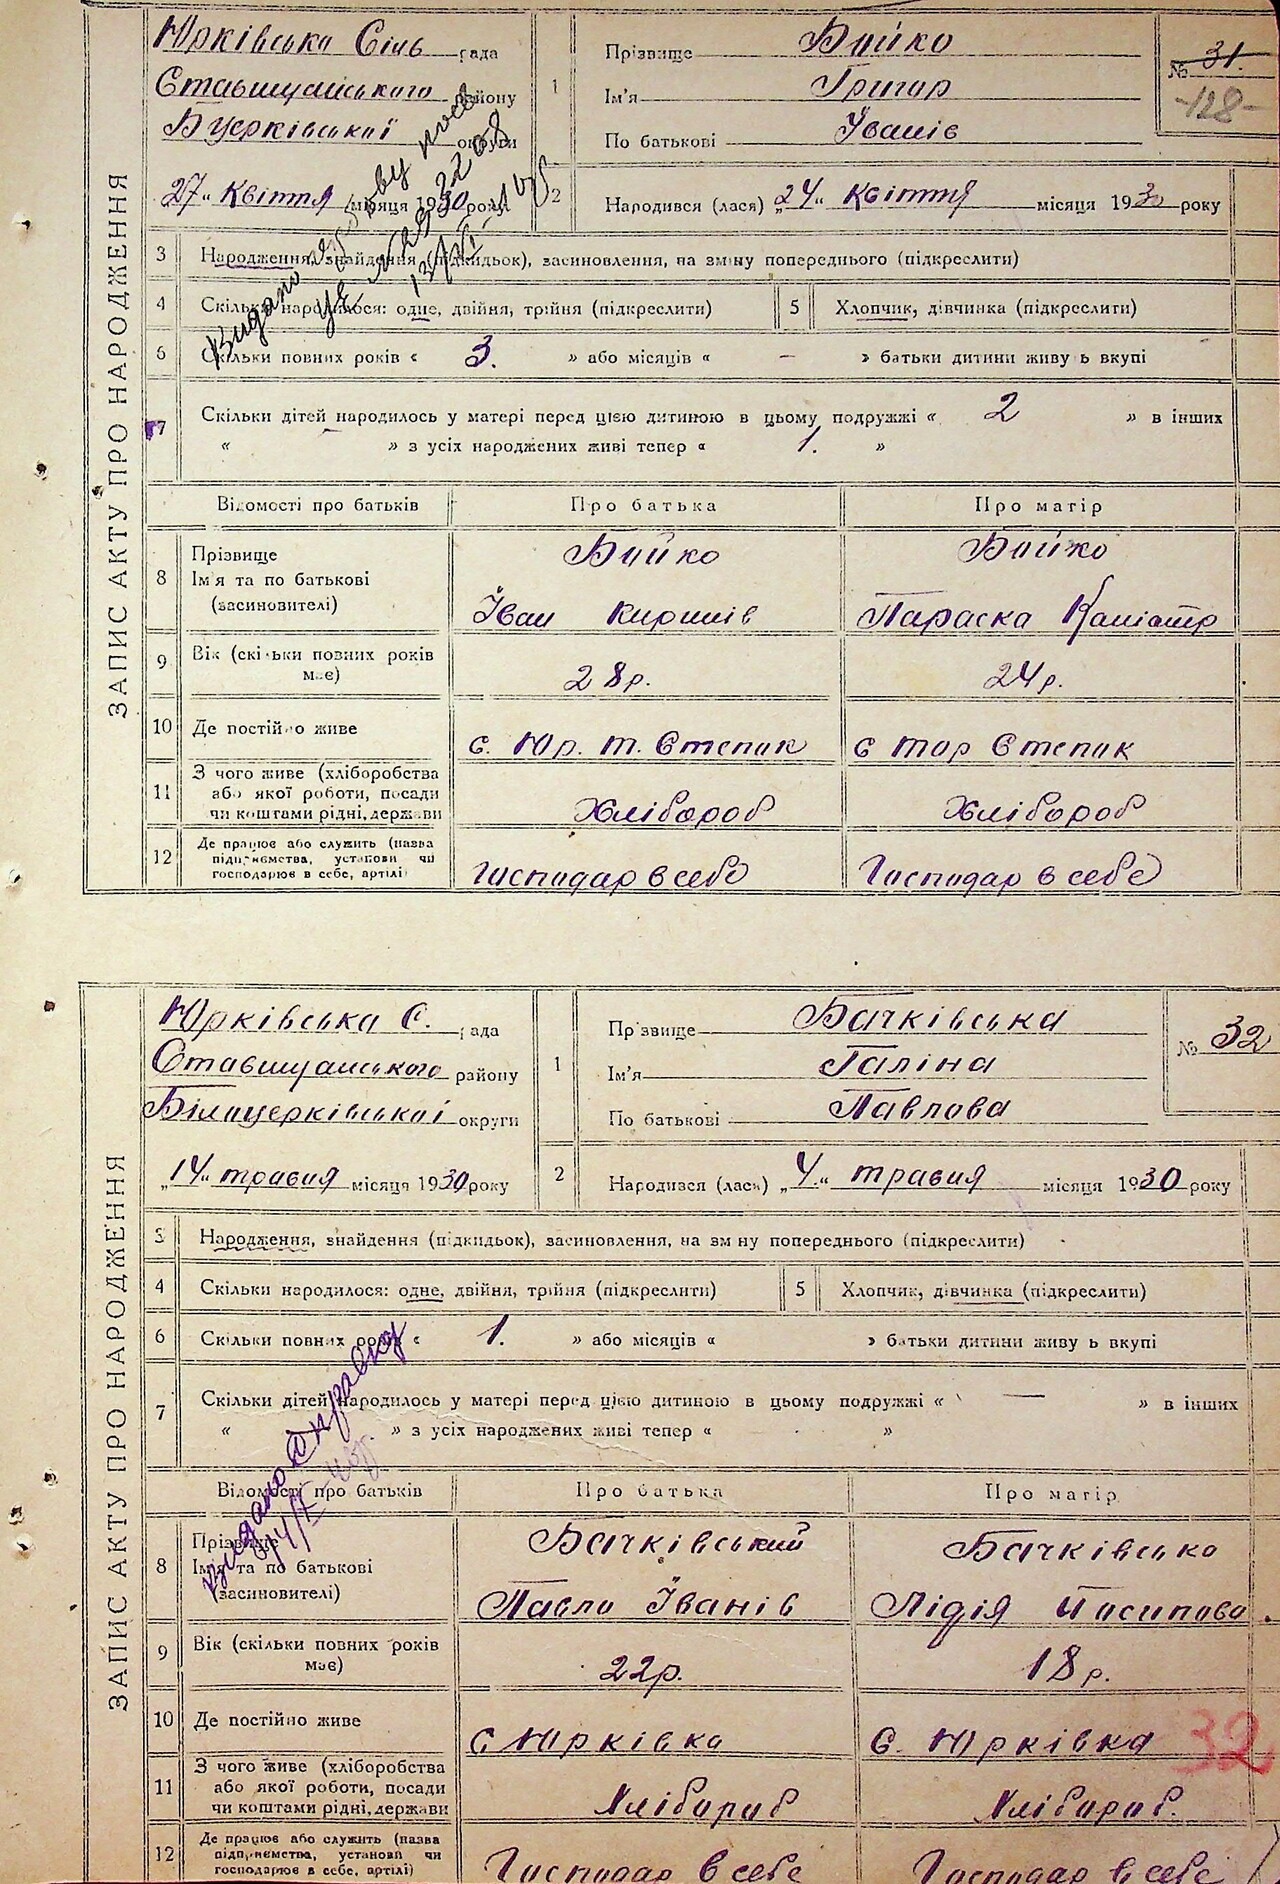 ЗАПИС АКТУ ПРО НАРОДЖЕННЯ
Юрківська Сіль рада
Ставищанського району
Б Церківської округи
27 " Квітня місяця 1930 року
1 Прізвище Бойко
Ім'я Григор
По батькові Іванів
№ 31.
-128-
2 Народився (лася) „24" Квітня місяця 1930 року
Видано
3 Народження, знайдення (підкидьок), засиновлення, на зміну попереднього (підкреслити)
4 Скільки народилося: одне, двійня, трійня (підкреслити)
5 Хлопчик, дівчинка (підкреслити)
6 Скільки повних років « 3. » або місяців « — » батьки дитини живуть вкупі
7 Скільки дітей народилось у матері перед цією дитиною в цьому подружжі « 2 » в інших
« – » з усіх народжених живі тепер « 1. »
Відомості про батьків Про батька Про матір
8 Прізвище Ім'я та по батькові (засиновителі)
Бойко Бойко
Іван Параска
9 Вік (скільки повних років має) 28р. 24р.
10 Де постійно живе с. Юр. т. Степок с Степок
11 З чого живе (хліборобства або якої роботи, посади чи коштами рідні, держави Хлібороб Хлібороб
12 Де працює або служить (назва підприємства, установи чи господарює в себе, артілі) Господар в себе Господар в себе
ЗАПИС АКТУ ПРО НАРОДЖЕННЯ
Юрківська С. рада
Ставищанського району
Білоцерківської округи
„14" травня місяця 1930 року
1 Прізвище Бачківська
Ім'я Галіна
По батькові Павлова
№ 32
2 Народився (лася) „4" травня місяця 1930 року
3 Народження, знайдення (підкидьок), засиновлення, на зміну попереднього (підкреслити)
4 Скільки народилося: одне, двійня, трійня (підкреслити)
5 Хлопчик, дівчинка (підкреслити)
6 Скільки повних років « 1. » або місяців « » батьки дитини живуть вкупі
7 Скільки дітей народилось у матері перед цією дитиною в цьому подружжі « — » в інших
« » з усіх народжених живі тепер « »
Видано Справку
Відомості про батьків Про батька Про матір
8 Прізвище Ім'я та по батькові (засиновителі)
Бачківський Бачківсько
Павло Іванів Лідія
9 Вік (скільки повних років має) 22р. 18 р.
10 Де постійно живе с Юрківка с. Юрківка
32
11 З чого живе (хліборобства або якої роботи, посади чи коштами рідні, держави Хлібороб Хлібороб.
12 Де працює або служить (назва підприємства, установи чи господарює в себе, артілі) Господар в себе Господар в себе